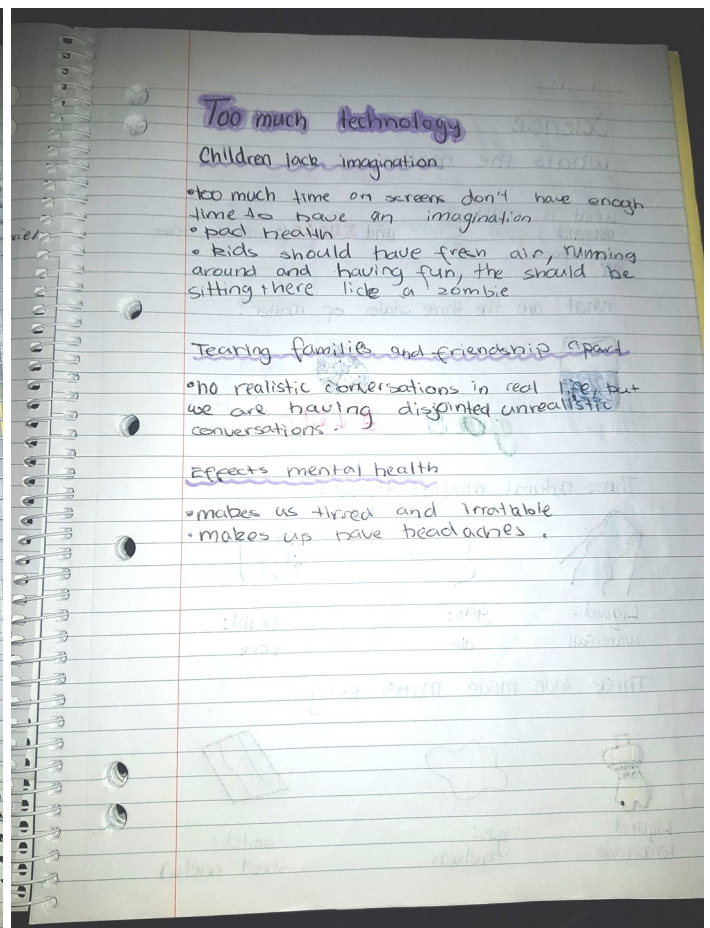 Too much technology
Children lack imagination
•too much time on screens don't have enogh
time to have an imagination
• bad health
• kids should have fresh air, running
around and having fun, the should be
sitting there like a zombie
Tearing families and friendship apart
•no realistic conversations in real life, but
we are having disjointed unrealistic
conversations.
Effects mental health
•makes us tirred and irratable
•makes up have headaches.